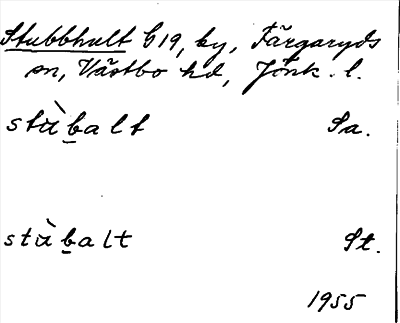 Stubbhult G19, by, Färgaryds
sn, Västbo hd, Jönk. l.
stu̇̀b̲alt Sa.
stu̇̀b̲alt St.
1955